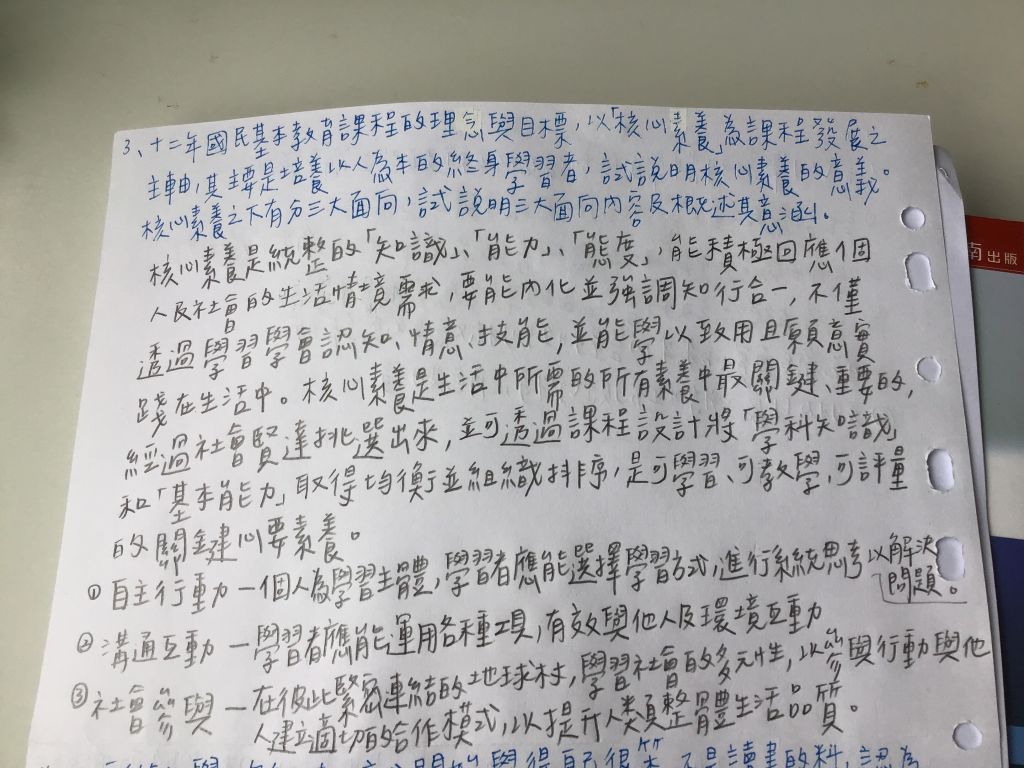 3、十二年國民基本教育課程的理念與目標,以「核心素養」為課程發展之
主軸,其主要是培養以人為本的終身學習者,試說明核心素養的意義。
核心素養之下有分三大面向,試說明三大面向內容及概述其意涵。
核心素養是統整的「知識」、「能力」、「態度」,能積極回應個
人及社會的生活情境需求,要能內化並強調知行合一,不僅
透過學習學會認知、情意、技能,並能學以致用且願意實
踐在生活中。核心素養是生活中所需的所有素養中最關鍵、重要的,
經過社會賢達挑選出來,並可透過課程設計將「學科知識」
和「基本能力」取得均衡並組織排序,是可學習、可教學、可評量
的關鍵心要素養。
① 自主行動 — 個人為學習主體,學習者應能選擇學習方式,進行系統思考以解決
問題。
② 溝通互動 — 學習者應能運用各種工具,有效與他人及環境互動
③ 社會參與 — 在彼此緊密連結的地球村,學習社會的多元性,以參與行動與他
人建立適切的合作模式,以提升人類整體生活品質。
南出版